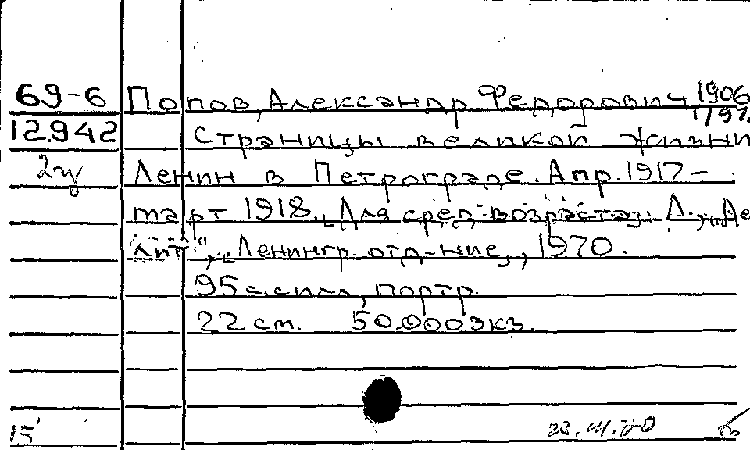 69-6 Попов, Александр Федорович 1906
12.942 Страницы великой жизни
2ч Ленин в Петрограде. Апр. 1917-
март 1918. [Для сред. возраста]. Л., „Де
лит“, Ленингр. отд-ние, 1970.
95 с. с илл., портр.
22 см. 50.000 экз.
15